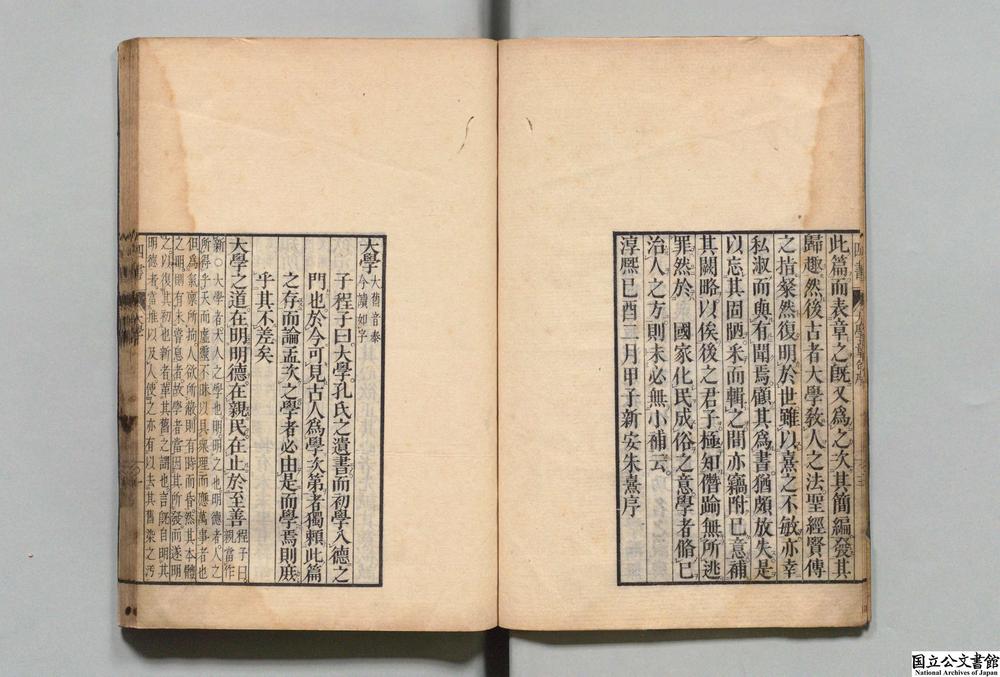 此篇而表章之旣又爲之次其簡編發其
歸趣然後古者大學敎人之法聖經賢傳
之指粲然復明於世雖以熹之不敏亦幸
私淑而與有聞焉顧其爲書猶頗放失是
以忘其固陋釆而輯之間亦竊附己意補
其闕略以俟後之君子極知僭踰無所逃
罪然於 國家化民成俗之意學者脩己
治人之方則未必無小補云
淳熈己酉二月甲子新安朱熹序
大學 大舊音泰
今讀如字
子程子曰大學孔氏之遺書而初學入德之
門也於今可見古人爲學次第者獨賴此篇
之存而論孟次之學者必由是而學焉則庶
乎其不差矣
大學之道在明明德在親民在止於至善 程子曰
親當作
新○大學者大人之學也明明之也明德者人之
所得乎天而虛靈不昧以具衆理而應萬事者也
但爲氣稟所拘人欲所蔽則有時而昏然其本體
之明則有未嘗息者故學者當因其所發而遂明
之以復其初也新者革其舊之謂也言旣自明其
明德又當推以及人使之亦有以去其舊染之汚
四書
國立公文書館
National Archives of Japan